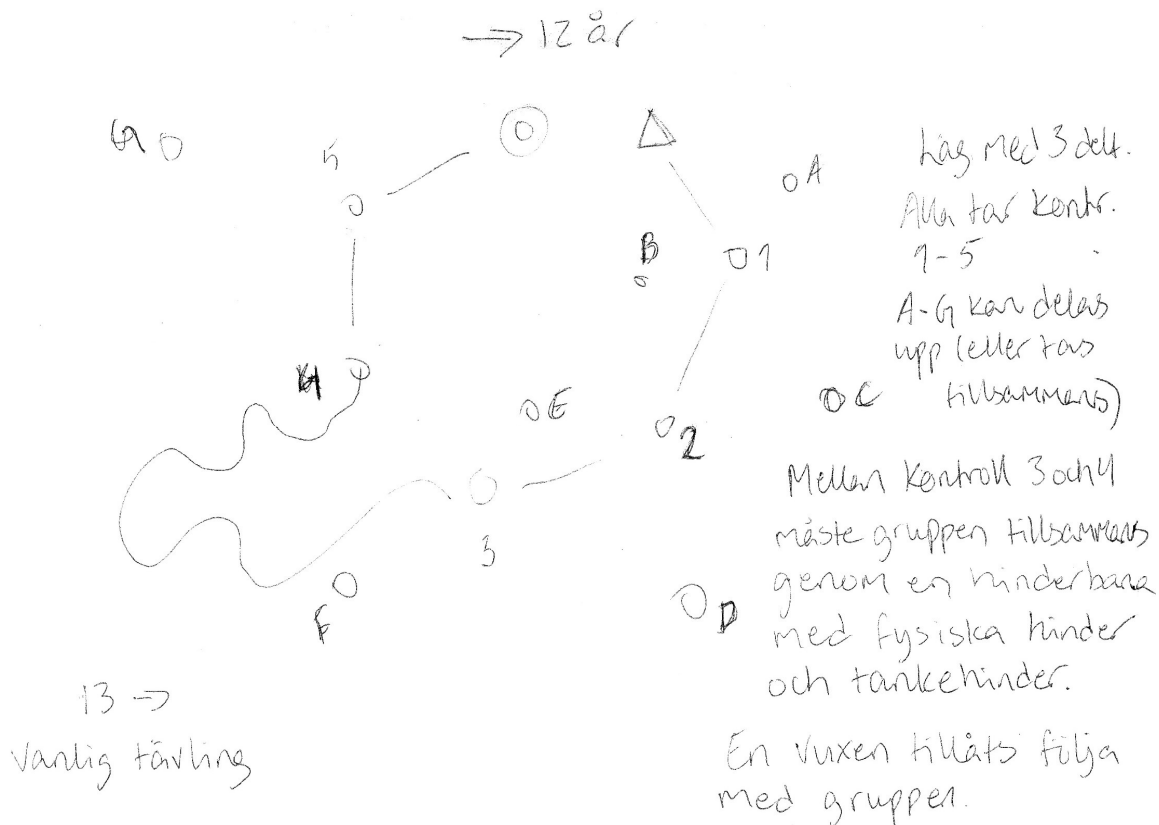 → 12 år
G
5
A
B
1
4
E
C
2
3
F
D
Lag med 3 delt.
Alla tar kontr.
1-5
A-G kan delas
upp (eller tas
tillsammans)
Mellan kontroll 3 och 4
måste gruppen tillsammans
genom en hinderbana
med fysiska hinder
och tankehinder.
En vuxen tillåts följa
med gruppen.
13 →
Vanlig tävling